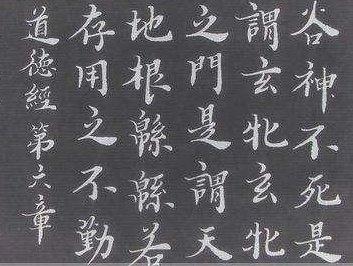 谷神不死是
謂玄牝玄牝
之門是謂天
地根緜緜若
存用之不勤
道德經第六章